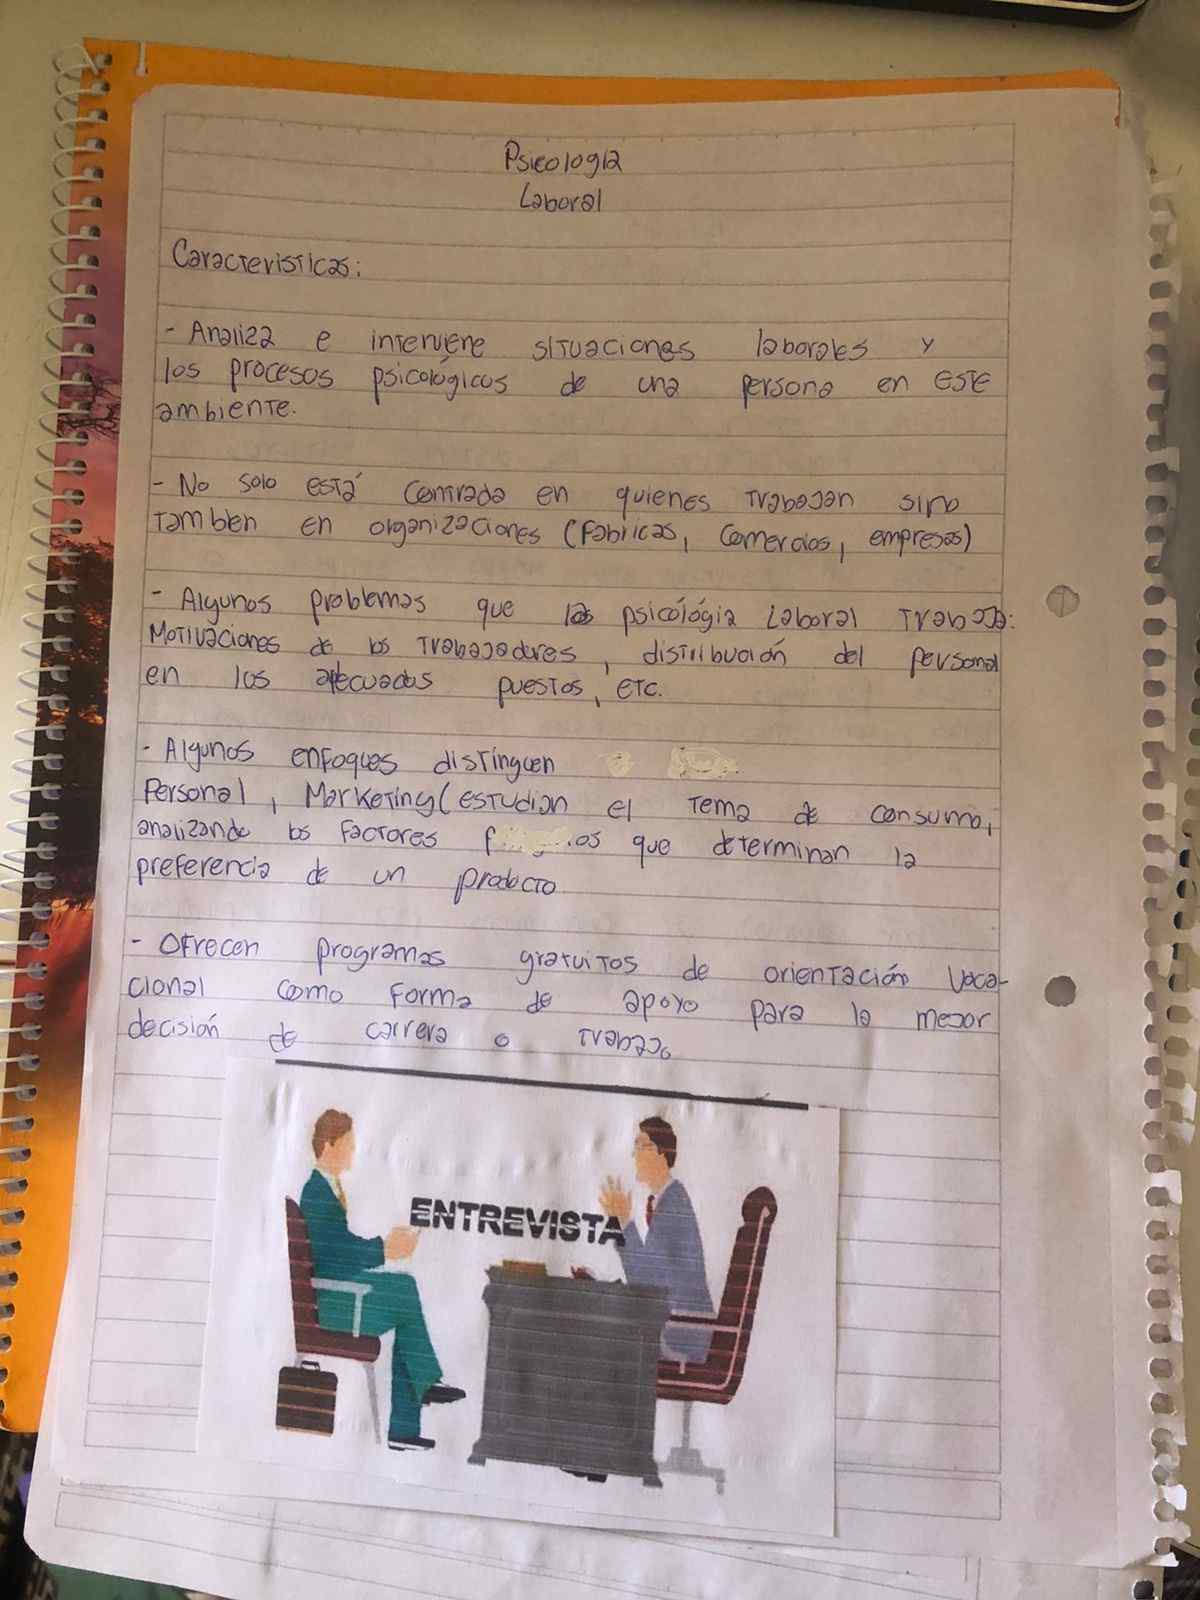 Psicología
Laboral
Caracteristicas:
- Analiza e interviene situaciones laborales y
los procesos psicológicos de una persona en este
ambiente.
- No solo está centrada en quienes trabajan sino
tambien en organizaciones (fabricas, comercios, empresas)
- Algunos problemas que la psicológia Laboral trabaja:
Motivaciones de los trabajadores, distribución del personal
en los adecuados puestos, etc.
- Algunos enfoques distinguen
Personal, Marketing (estudian el tema de consumo,
analizando los factores que determinan la
preferencia de un producto
- Ofrecen programas gratuitos de orientación voca-
cional como forma de apoyo para la mejor
decisión de carrera o trabajo
ENTREVISTA